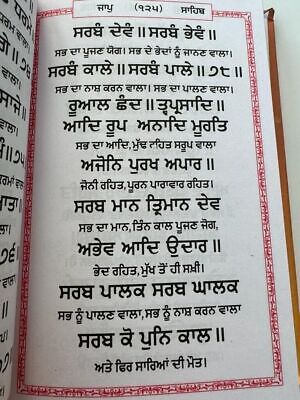 ਜਾਪੁ (੧੨੫) ਸਾਹਿਬ
ਸਰਬੰ ਦੇਵੰ ॥ ਸਰਬੰ ਭੇਵੰ ॥
ਸਭ ਦਾ ਪੂਜਣ ਯੋਗ। ਸਭ ਦੇ ਭੇਦਾਂ ਨੂੰ ਜਾਨਣ ਵਾਲਾ।
ਸਰਬੰ ਕਾਲੇ ॥ ਸਰਬੰ ਪਾਲੇ ॥੭੮॥
ਸਭ ਦਾ ਨਾਸ਼ ਕਰਨ ਵਾਲਾ। ਸਭ ਦਾ ਪਾਲਣ ਵਾਲਾ।
ਰੂਆਲ ਛੰਦ ॥ ਤ੍ਵਪ੍ਰਸਾਦਿ ॥
ਆਦਿ ਰੂਪ ਅਨਾਦਿ ਮੂਰਤਿ
ਸਭ ਦਾ ਆਦਿ, ਮੁੱਢ ਰਹਿਤ ਸਰੂਪ ਵਾਲਾ
ਅਜੋਨਿ ਪੁਰਖ ਅਪਾਰ ॥
ਜੋਨੀ ਰਹਿਤ, ਪੂਰਨ ਪਾਰਾਵਾਰ ਰਹਿਤ।
ਸਰਬ ਮਾਨ ਤ੍ਰਿਮਾਨ ਦੇਵ
ਸਭ ਦਾ ਮਾਨ, ਤਿੰਨ ਕਾਲ ਪੂਜਣ ਜੋਗ,
ਅਭੇਵ ਆਦਿ ਉਦਾਰ ॥
ਭੇਦ ਰਹਿਤ, ਮੁੱਢ ਤੋਂ ਹੀ ਸਖ਼ੀ।
ਸਰਬ ਪਾਲਕ ਸਰਬ ਘਾਲਕ
ਸਭ ਨੂੰ ਪਾਲਣ ਵਾਲਾ, ਸਭ ਨੂੰ ਨਾਸ਼ ਕਰਨ ਵਾਲਾ
ਸਰਬ ਕੋ ਪੁਨਿ ਕਾਲ ॥
ਅਤੇ ਫਿਰ ਸਾਰਿਆਂ ਦੀ ਮੌਤ।